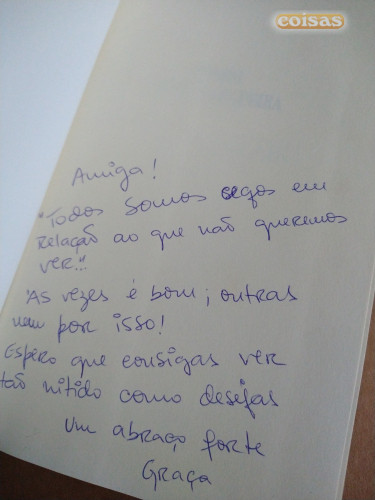 coisas
Amiga!
"Todos somos cegos em
Relação ao que não queremos
ver..."
Às vezes é bom; outras
nem por isso!
Espero que consigas ver
tão nitido como desejas
um abraço forte
Graça